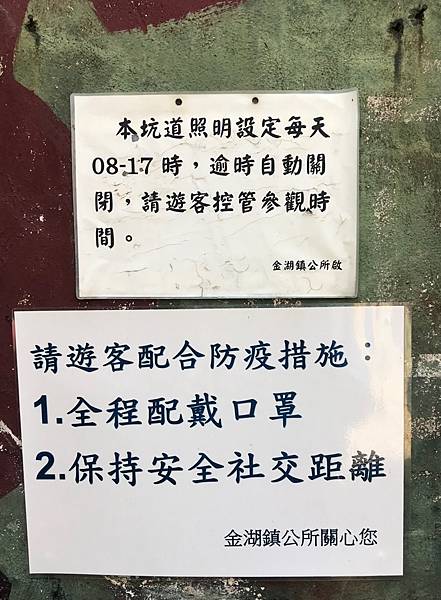 本坑道照明設定每天
08-17時，逾時自動關
閉，請遊客控管參觀時
間。
金湖鎮公所啟
請遊客配合防疫措施：
1.全程配戴口罩
2.保持安全社交距離
金湖鎮公所關心您